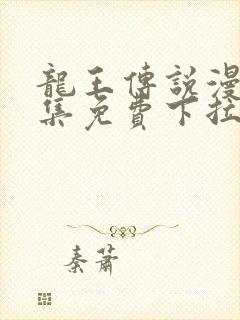 龍王傳說漫
集免費下拉
秦蕭